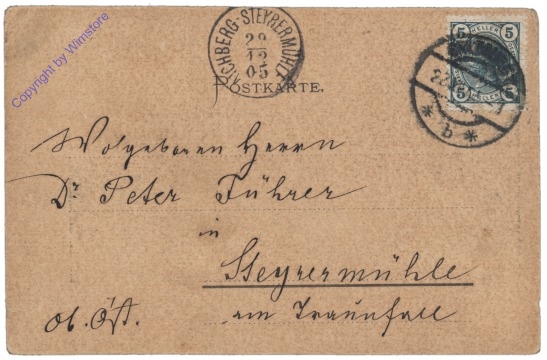 Copyright by Wimstore
AICHBERG-STEYRERMÜHL
29
12
05
5 HELLER 5
5 5
* b *
POSTKARTE.
Wolgeboren Herrn
Dr Peter Führer
in
Steyrermühle
am Traunfall
Ob. Öst.